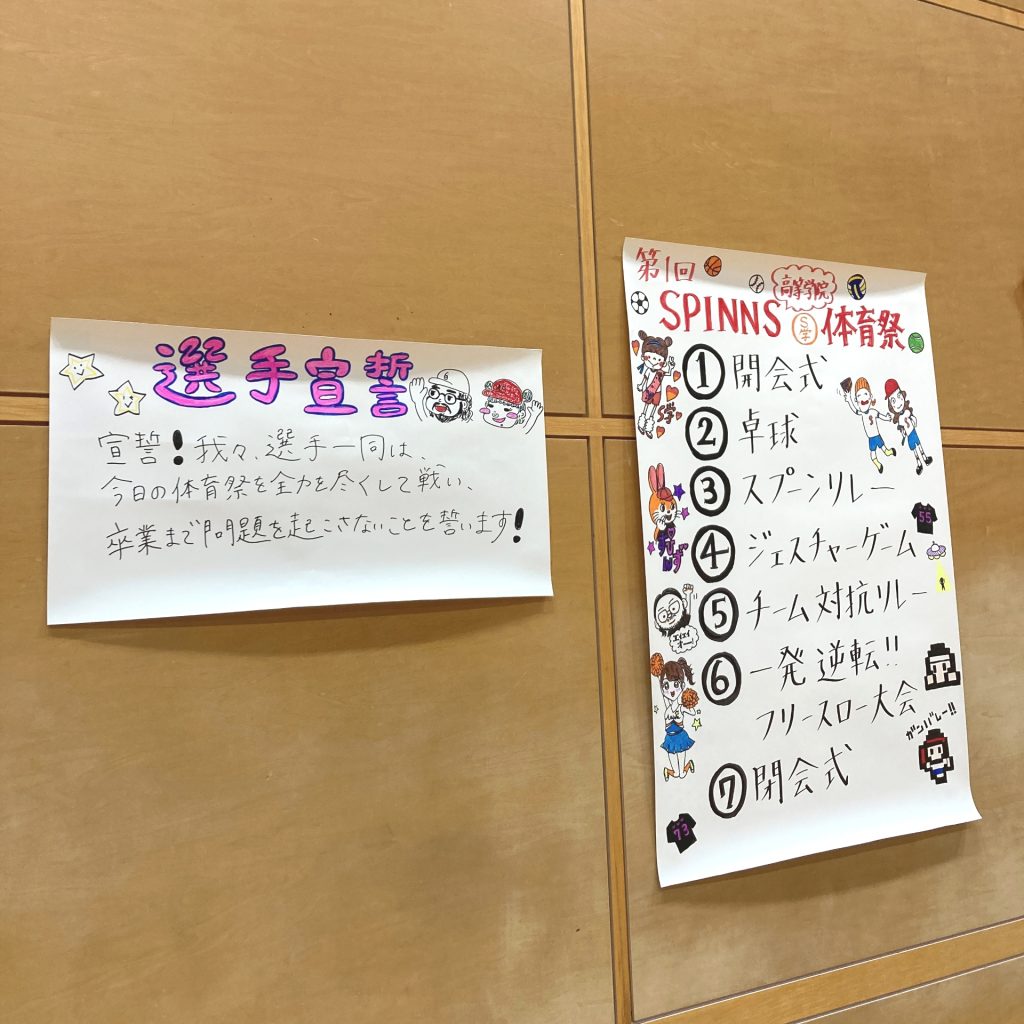 選手宣誓
宣誓！我々、選手一同は、
今日の体育祭を全力を尽くして戦い、
卒業まで問題を起こさないことを誓います！
第1回
高等学院
SPINNS S学 体育祭
① 開会式
② 卓球
③ スプーンリレー
④ ジェスチャーゲーム
⑤ チーム対抗リレー
⑥ 一発逆転!!
フリースロー大会
⑦ 閉会式
S学
55
エイエイ
オー!
ガンバレー!!
73